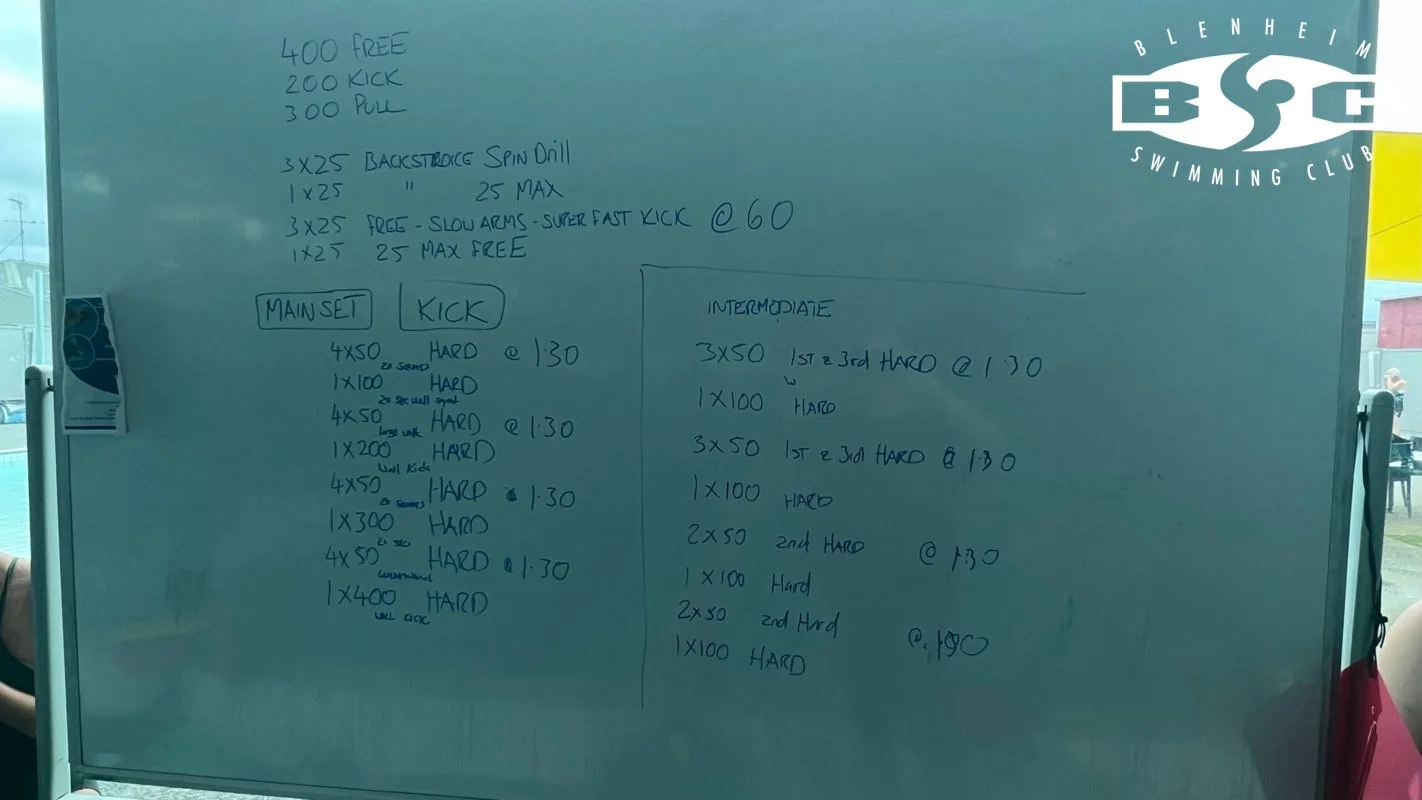 BLENHEIM
BSC
SWIMMING CLUB
400 FREE
200 KICK
300 PULL
3X25 BACKSTROKE SPIN Drill
1X25 " 25 MAX
3X25 FREE - SLOW ARMS - SUPER FAST KICK @ 60
1X25 25 MAX FREE
MAIN SET KICK
4X50 HARD @ 1:30
1X100 HARD
20 sec wall
4X50 HARD @ 1:30
1X200 HARD
Wall Kick
4X50 HARD 1:30
1X300 HARD
4X50 HARD 1:30
1X400 HARD
WALL KICK
INTERMEDIATE
3X50 1ST & 3rd HARD @ 1:30
1X100 HARD
3X50 1ST & 3rd HARD @ 1:30
1X100 HARD
2X50 2nd HARD @ 1:30
1X100 Hard
2X50 2nd Hard @
1X100 HARD